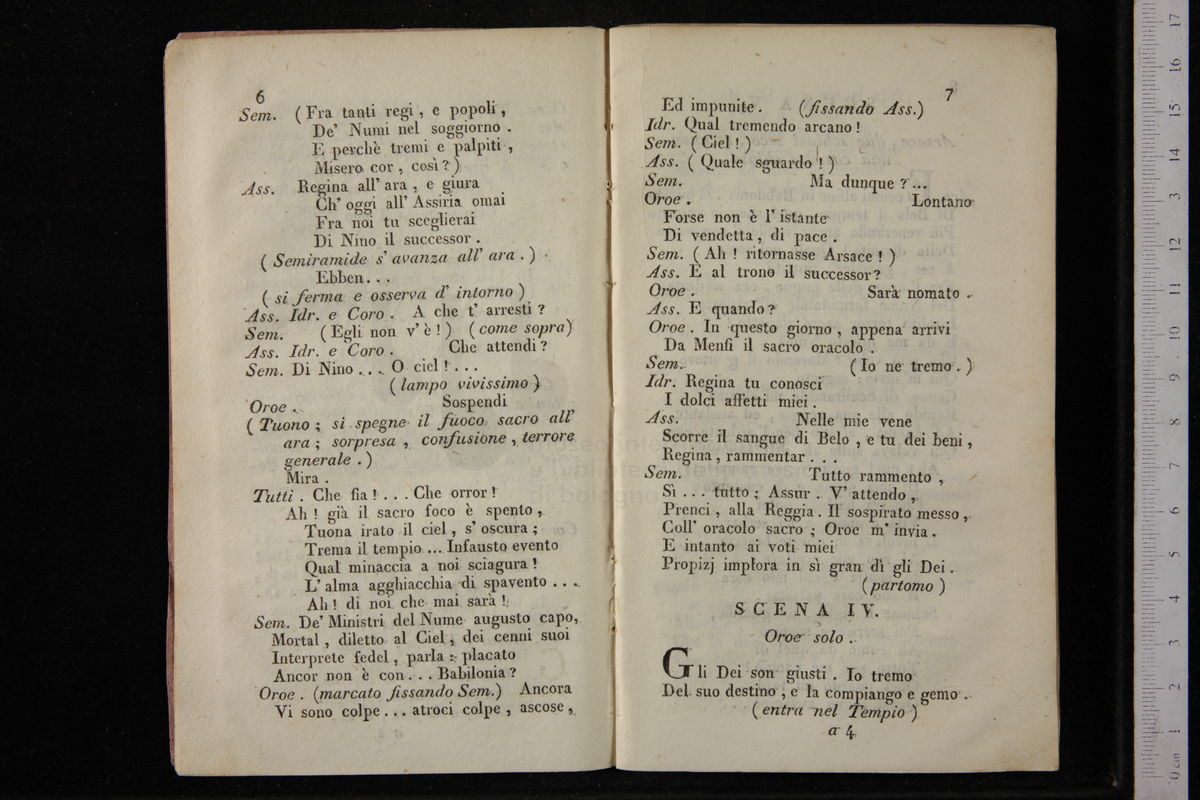 6
Sem. (Fra tanti regi, e popoli,
De' Numi nel soggiorno.
E perchè tremi e palpiti,
Misero cor, così?)
Ass. Regina all' ara, e giura
Ch' oggi all' Assiria omai
Fra noi tu sceglierai
Di Nino il successor.
(Semiramide s' avanza all' ara.)
Ebben...
(si ferma e osserva d' intorno)
Ass. Idr. e Coro. A che t' arresti?
Sem. (Egli non v' è!) (come sopra)
Ass. Idr. e Coro. Che attendi?
Sem. Di Nino... O ciel!...
(lampo vivissimo)
Oroe. Sospendi
(Tuono; si spegne il fuoco sacro all'
ara; sorpresa, confusione, terrore
generale.)
Mira.
Tutti. Che fia!... Che orror!
Ah! già il sacro foco è spento,
Tuona irato il ciel, s' oscura;
Trema il tempio... Infausto evento
Qual minaccia a noi sciagura!
L' alma agghiacchia di spavento...
Ah! di noi che mai sarà!
Sem. De' Ministri del Nume augusto capo,
Mortal, diletto al Ciel, dei cenni suoi
Interprete fedel, parla: placato
Ancor non è con... Babilonia?
Oroe. (marcato fissando Sem.) Ancora
Vi sono colpe... atroci colpe, ascose,
7
Ed impunite. (fissando Ass.)
Idr. Qual tremendo arcano!
Sem. (Ciel!)
Ass. (Quale sguardo!)
Sem. Ma dunque?...
Oroe. Lontano
Forse non è l' istante
Di vendetta, di pace.
Sem. (Ah! ritornasse Arsace!)
Ass. E al trono il successor?
Oroe. Sarà nomato.
Ass. E quando?
Oroe. In questo giorno, appena arrivi
Da Menfi il sacro oracolo.
Sem. (Io ne tremo.)
Idr. Regina tu conosci
I dolci affetti miei.
Ass. Nelle mie vene
Scorre il sangue di Belo, e tu dei beni,
Regina, rammentar...
Sem. Tutto rammento,
Sì... tutto; Assur. V' attendo,
Prenci, alla Reggia. Il sospirato messo,
Coll' oracolo sacro; Oroe m' invia.
E intanto ai voti miei
Propizj implora in sì gran dì gli Dei.
(partomo)
SCENA IV.
Oroe solo.
Gli Dei son giusti. Io tremo
Del suo destino, e la compiango e gemo.
(entra nel Tempio)
a 4
0 cm 1 2 3 4 5 6 7 8 9 10 11 12 13 14 15 16 17